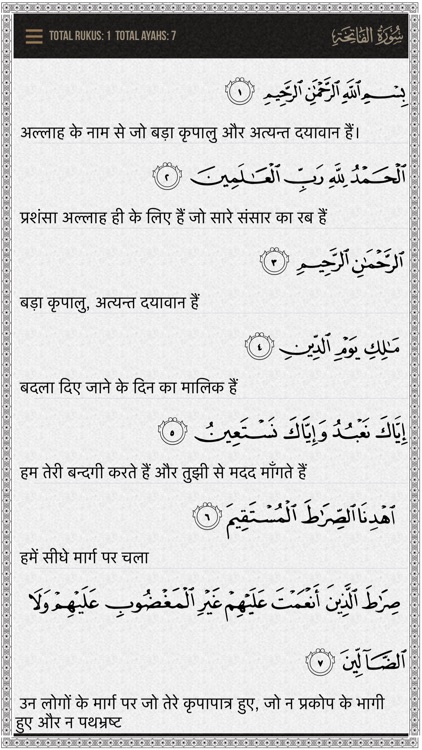 TOTAL RUKUS: 1 TOTAL AYAHS: 7 سُورَةُ الفَاتِحَة
بِسْمِ ٱللَّهِ ٱلرَّحْمَٰنِ ٱلرَّحِيمِ ١
अल्लाह के नाम से जो बड़ा कृपालु और अत्यन्त दयावान हैं।
ٱلْحَمْدُ لِلَّهِ رَبِّ ٱلْعَٰلَمِينَ ٢
प्रशंसा अल्लाह ही के लिए हैं जो सारे संसार का रब हैं
ٱلرَّحْمَٰنِ ٱلرَّحِيمِ ٣
बड़ा कृपालु, अत्यन्त दयावान हैं
مَٰلِكِ يَوْمِ ٱلدِّينِ ٤
बदला दिए जाने के दिन का मालिक हैं
إِيَّاكَ نَعْبُدُ وَإِيَّاكَ نَسْتَعِينُ ٥
हम तेरी बन्दगी करते हैं और तुझी से मदद माँगते हैं
ٱهْدِنَا ٱلصِّرَٰطَ ٱلْمُسْتَقِيمَ ٦
हमें सीधे मार्ग पर चला
صِرَٰطَ ٱلَّذِينَ أَنْعَمْتَ عَلَيْهِمْ غَيْرِ ٱلْمَغْضُوبِ عَلَيْهِمْ وَلَا
ٱلضَّآلِّينَ ٧
उन लोगों के मार्ग पर जो तेरे कृपापात्र हुए, जो न प्रकोप के भागी
हुए और न पथभ्रष्ट